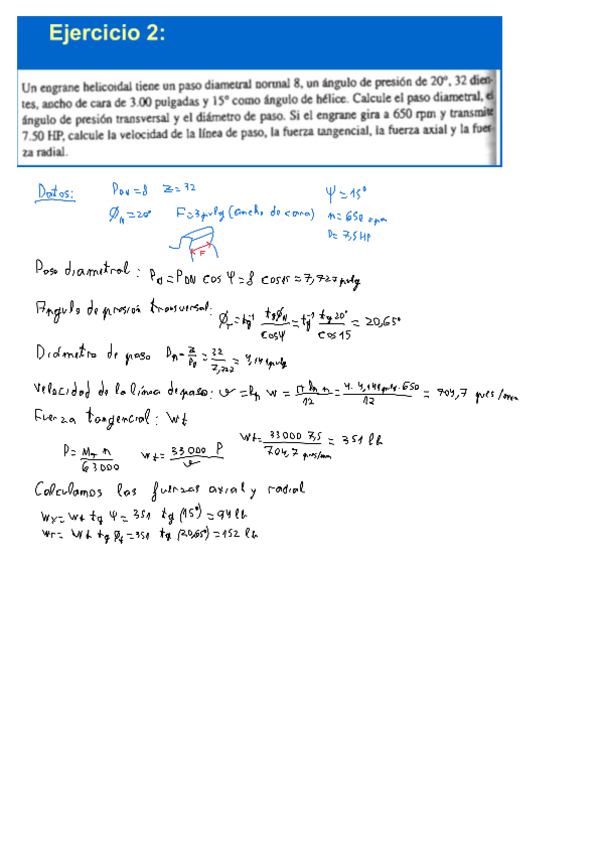 Ejercicio 2:
Un engrane helicoidal tiene un paso diametral normal 8, un ángulo de presión de 20°, 32 dien-
tes, ancho de cara de 3.00 pulgadas y 15° como ángulo de hélice. Calcule el paso diametral, el
ángulo de presión transversal y el diámetro de paso. Si el engrane gira a 650 rpm y transmite
7.50 HP, calcule la velocidad de la línea de paso, la fuerza tangencial, la fuerza axial y la fuer-
za radial.
Datos: PDN=8 Z=32 Ψ=15°
ϕn=20° F=3 pulg (ancho de cara) n=650 rpm
P=7,5 HP
F
Paso diametral: Pd=PDN cos Ψ=8 cos 15=7,727 pulg
Angulo de presión transversal: ϕT=tg⁻¹ tgϕn/cosΨ=tg⁻¹ tg 20°/cos 15=20,65°
Diámetro de paso Dn=Z/Pd=32/7,727=4,141 pulg
Velocidad de la línea de paso: v=Rn w=π Dn n/12=π. 4,141 pulg. 650/12=704,7 pies/min
Fuerza tangencial: Wt
P=MT n/63000 Wt=33000 P/v Wt=33000 7,5/704,7 pies/min=351 lb
Calculamos las fuerzas axial y radial
Wx=Wt tg Ψ=351 tg (15°)=94 lb
Wr=Wt tg ϕt=351 tg (20,65°)=152 lb